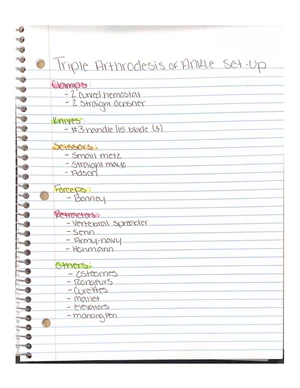 Triple Arthrodesis of Ankle Set-Up
Clamps:
- 2 curved hemostat
- 2 Straight ochsner
Knives:
- #3 handle/15 blade (s)
Scissors:
- Small metz
- Straight mayo
- Adson
Forceps:
- Bonney
Retractors:
- Vertebral spreader
- Senn
- Army-navy
- Hohmann
Others:
- Osteomes
- Rongeurs
- Curettes
- Mallet
- elevators
- marking pen